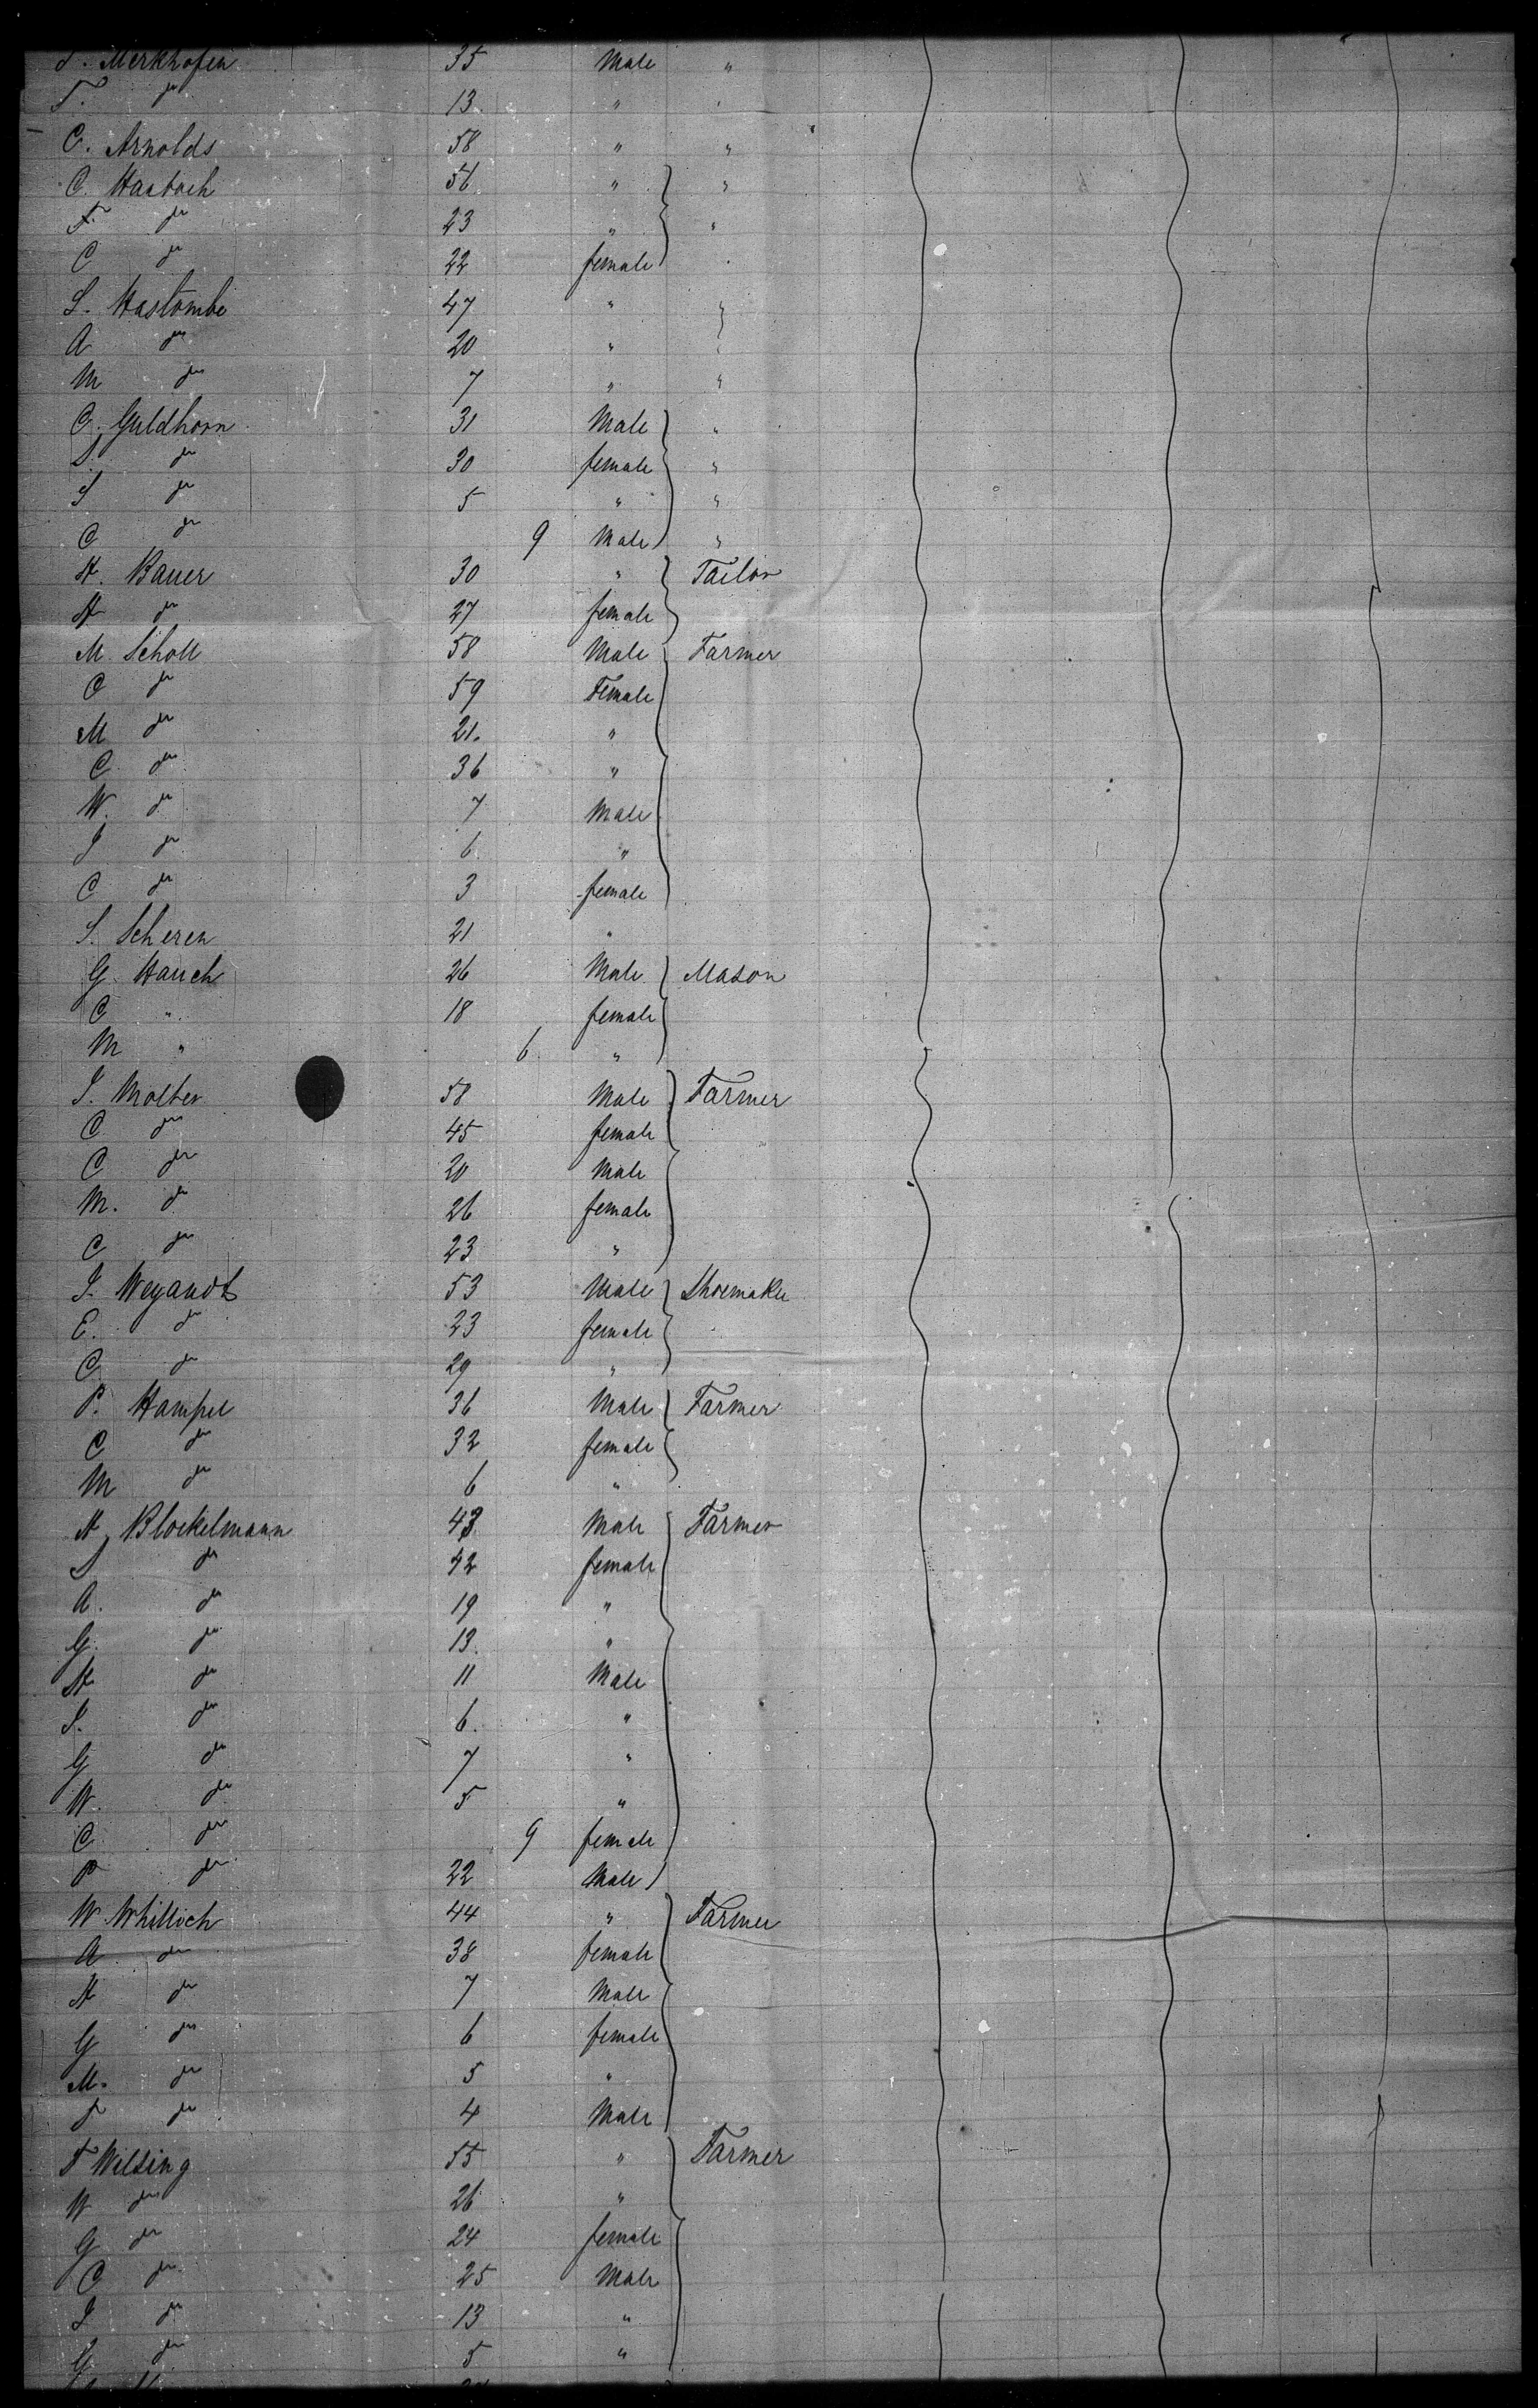 Merkhofen 35 Male "
T. do 13 " "
C. Arnolds 58 " "
C. Hasbach 56 " "
F. do 23 " "
C do 22 female "
S. Hastombe 47 " "
A do 20 " "
M do 7 " "
C. Guldhorn 31 Male "
S. do 30 female "
S do 5 " "
C do 9 Male "
H. Bauer 30 " Tailor
H do 27 female
M. Scholl 58 Male Farmer
C do 59 Female
M do 21. "
C. do 36 "
W. do 7 Male
J do 6 "
C do 3 female
S. Scheren 21 "
G. Hauch 26 Male Mason
C " 18 female
M " 6 "
J. Molter 58 Male Farmer
C do 45 female
C do 20 Male
M. do 26 female
C do 23 "
J. Weyandt 53 Male Shoemaker
E. do 23 female
C do 29 "
P. Hampel 36 Male Farmer
C do 32 female
M do 6 "
H. Blockelmann 43 Male Farmer
S do 42 female
A. do 19 "
G. do 13. "
H do 11 Male
S. do 6. "
G do 7 "
W. do 5 "
C. do 9 female
P do 22 Male
W. Whilloch 44 " Farmer
A do 38 female
H do 7 Male
G do 6 female
M. do 5 "
do 4 Male
F Wilsing 55 " Farmer
W do 26 "
G do 24 female
C do 25 Male
J do 13 "
G do 5 "